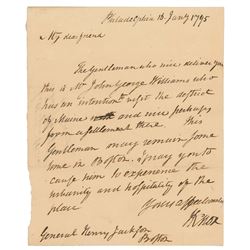 Philadelphia 13. Jany 1795
My dear friend
The Gentleman who will deliver you
this is Mr John George Williams who
has an intention visit the district
of Maine and perhaps
form a settlement there. This
Gentleman may remain some
time in Boston. I pray you to
cause him to experience the
urbanity and hospitality of the
place
Yours affectionately
HKnox
General Henry Jackson
Boston